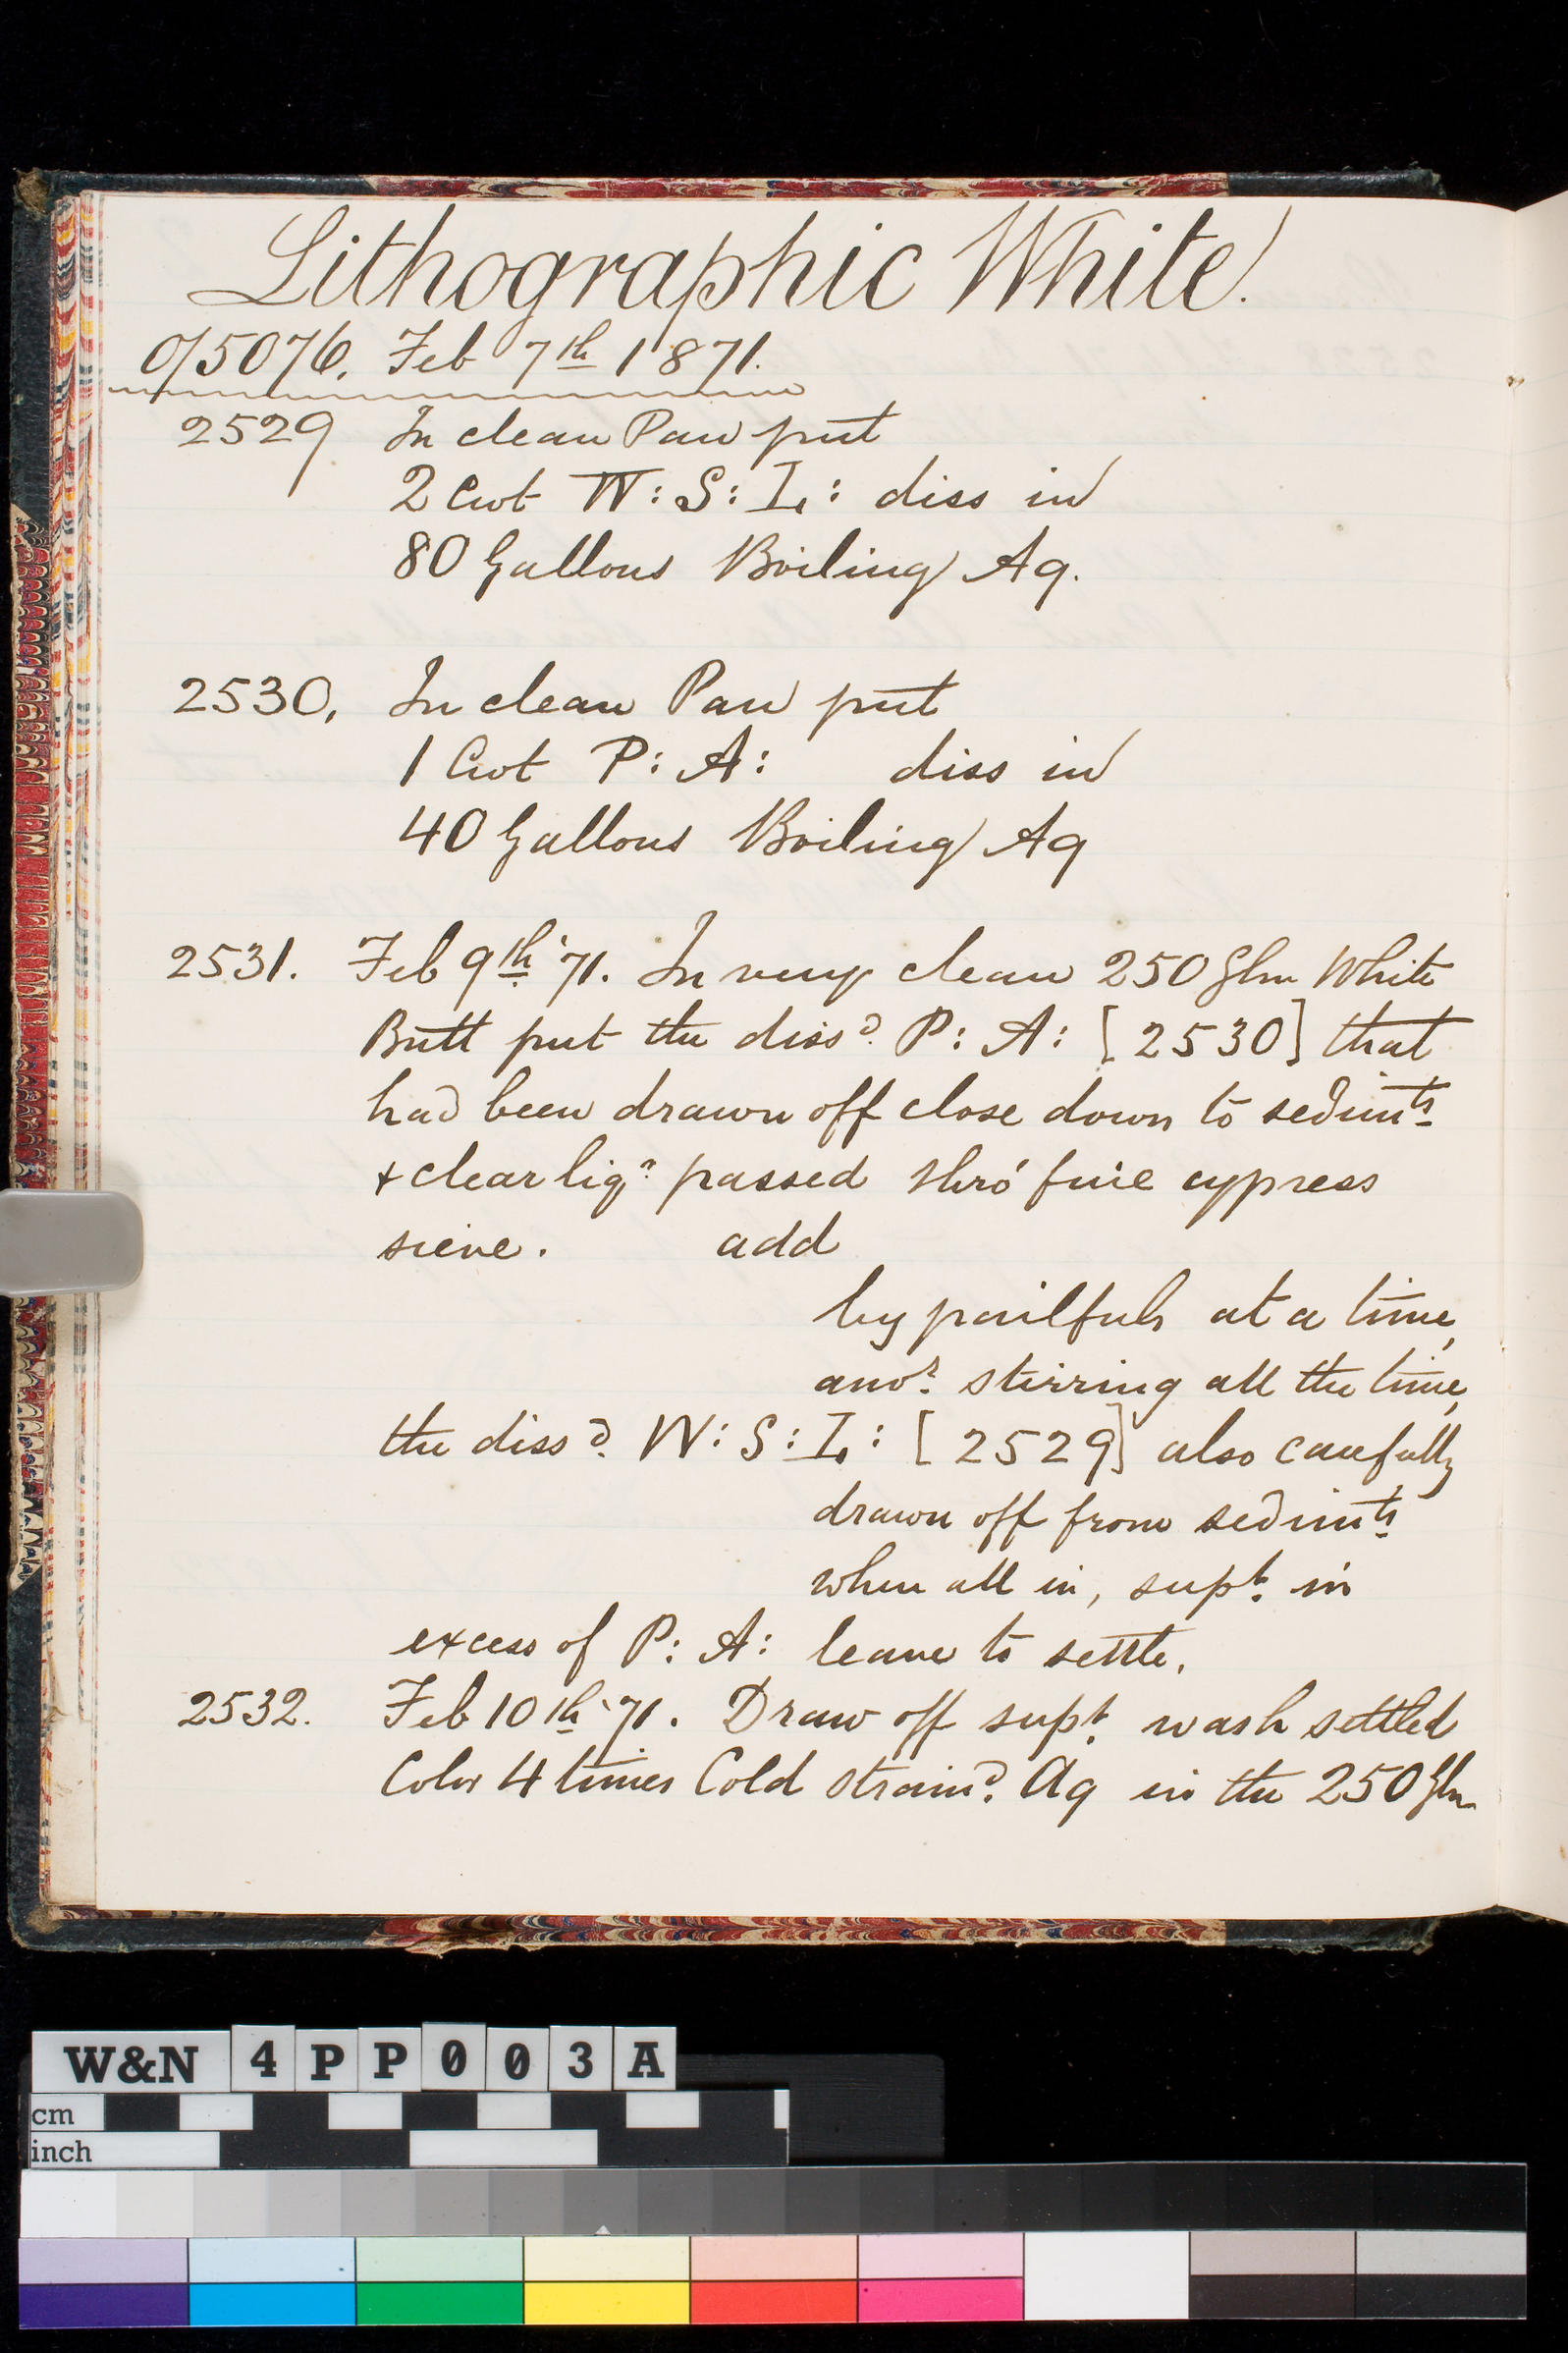 Lithographic White.
o/5076. Feb 7th 1871.
2529 In clean Pan put
2 Cwt W: S: L: diss in
80 Gallons Boiling Aq.
2530, In clean Pan put
1 Cwt P: A: diss in
40 Gallons Boiling Aq
2531. Feb 9th '71. In very clean 250 Gln White
Butt put the dissd. P: A: [2530] that
had been drawn off close down to sedimts
+ clear liqr. passed thro' fine cypress
sieve. add
by pailfuls at a time,
anor. stirring all the time,
the dissd. W: S: L: [2529] also carefully
drawn off from sedimts.
when all in, supt. in
excess of P: A: leave to settle.
2532. Feb 10th '71. Draw off supt. wash settled
Color 4 times Cold straind. Aq in the 250 Gln
W&N 4PP003A
cm
inch